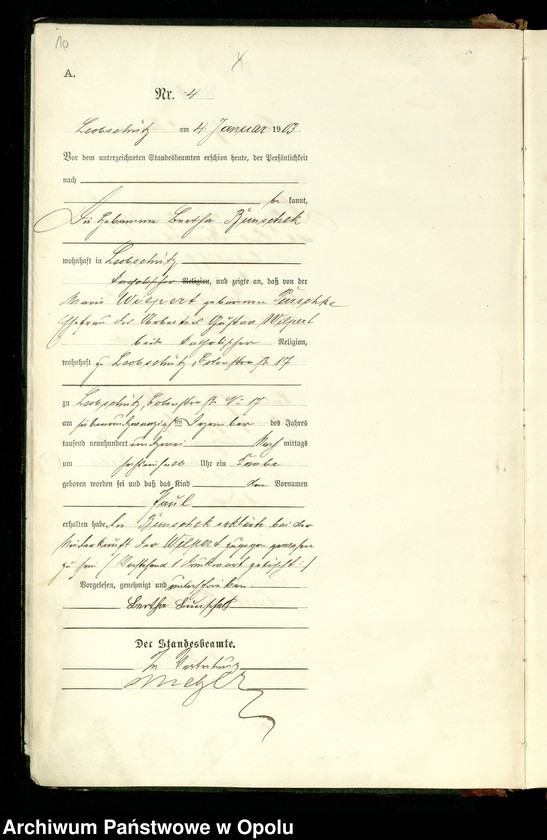 10
A.
Nr. 4
Leobschütz am 4. Januar 1903.
Vor dem unterzeichneten Standesbeamten erschien heute, der Persönlichkeit
nach
be kannt,
Die Hebamme Bertha Bunschek
wohnhaft in Leobschütz
katholischer Religion, und zeigte an, daß von der
Marie Wilpert geborenen Purschke
Ehefrau des Arbeiters Gustav Wilpert
beide katholischer Religion,
wohnhaft zu Leobschütz, 17
zu Leobschütz, No 17
am siebenundzwanzigsten Dezember des Jahres
tausend neunhundert und zwei Nach mittags
um sechseinhalb Uhr ein Knabe
geboren worden sei und daß das Kind den Vornamen
Paul
erhalten habe. Die Bunschek erklärte bei der
Niederkunft der Wilpert zugegen gewesen
zu sein. / Vorstehend 1 Druckwort gelöscht. /
Vorgelesen, genehmigt und unterschrieben.
Bertha Bunschek
Der Standesbeamte.
In Vertretung
Archiwum Państwowe w Opolu